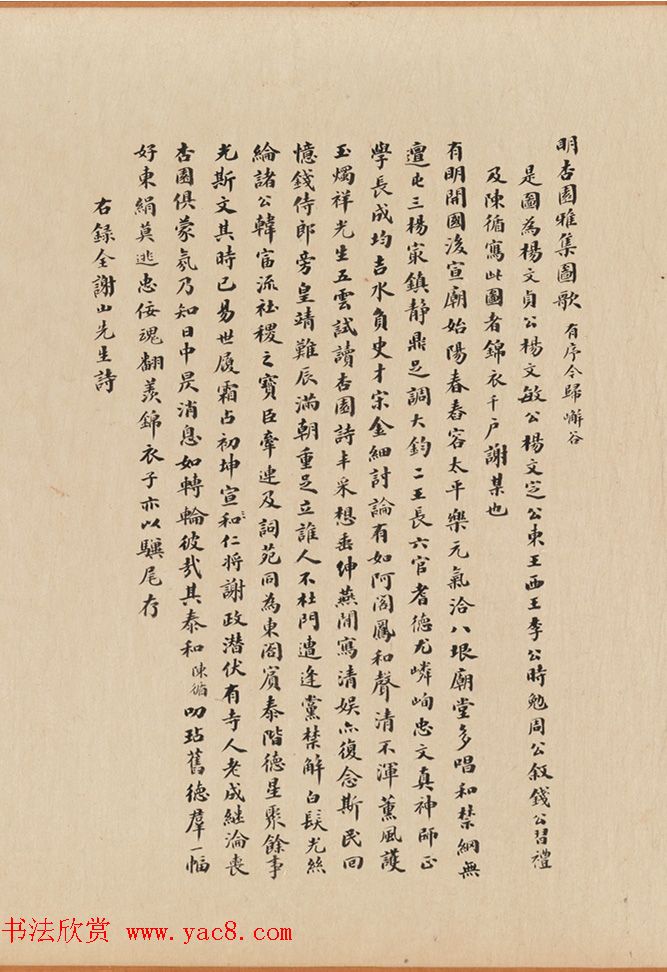 明杏園雅集圖歌 有序今歸嶰谷
是圖為楊文貞公楊文敏公楊文定公東王西王李公時勉周公叙錢公習禮
及陳循寫此圖者錦衣千戶謝某也
有明開國後宣廟始陽春舂容太平樂元氣洽八垠廟堂多唱和禁網無
邅屯三楊寂鎮靜鼎足調大鈞二王長六官耆德尤嶙峋忠文真神師正
學長成均吉水負史才宋金細討論有如阿閣鳳和聲清不渾薰風護
玉燭祥光生五雲試讀杏園詩丰采想垂紳燕閒寫清娛亦復念斯民回
憶錢侍郎旁皇靖難辰滿朝重足立誰人不杜門遭逢黨禁解白髮尤絲
綸諸公韓富流社稷之寶臣牽連及詞苑同為東閣賓泰階德星聚餘事
光斯文其時已易世履霜占初坤宣和和仁將謝政潛伏有寺人老成繼淪喪
杏園俱蒙氛乃知日中昃消息如轉輪彼哉其泰和陳循叨玷舊德羣一幅
好東絹莫逃忠佞魂翻羨錦衣子亦以驥尾存
右錄全謝山先生詩
书法欣赏 www.yac8.com